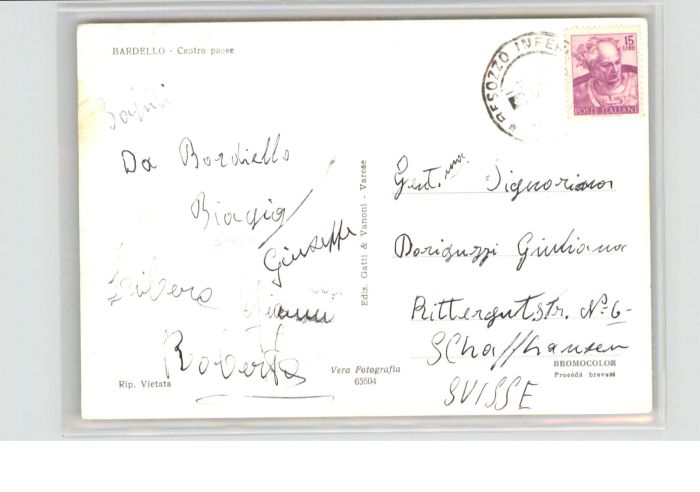 BARDELLO - Centro paese
Saluti
Da Bardiello
Biagio
Giuseppe
Libero Gianni
Roberto
Rip. Vietata
Vera Fotografia
65604
Ediz. Gatti & Vanoni - Varese
15
LIRE
POSTE ITALIANE
Gent.ma Signorina
Doriguzzi Giuliana
Rittergutstr. No 6-
SChaffhausen
SVISSE
BROMOCOLOR
Procédé breveté